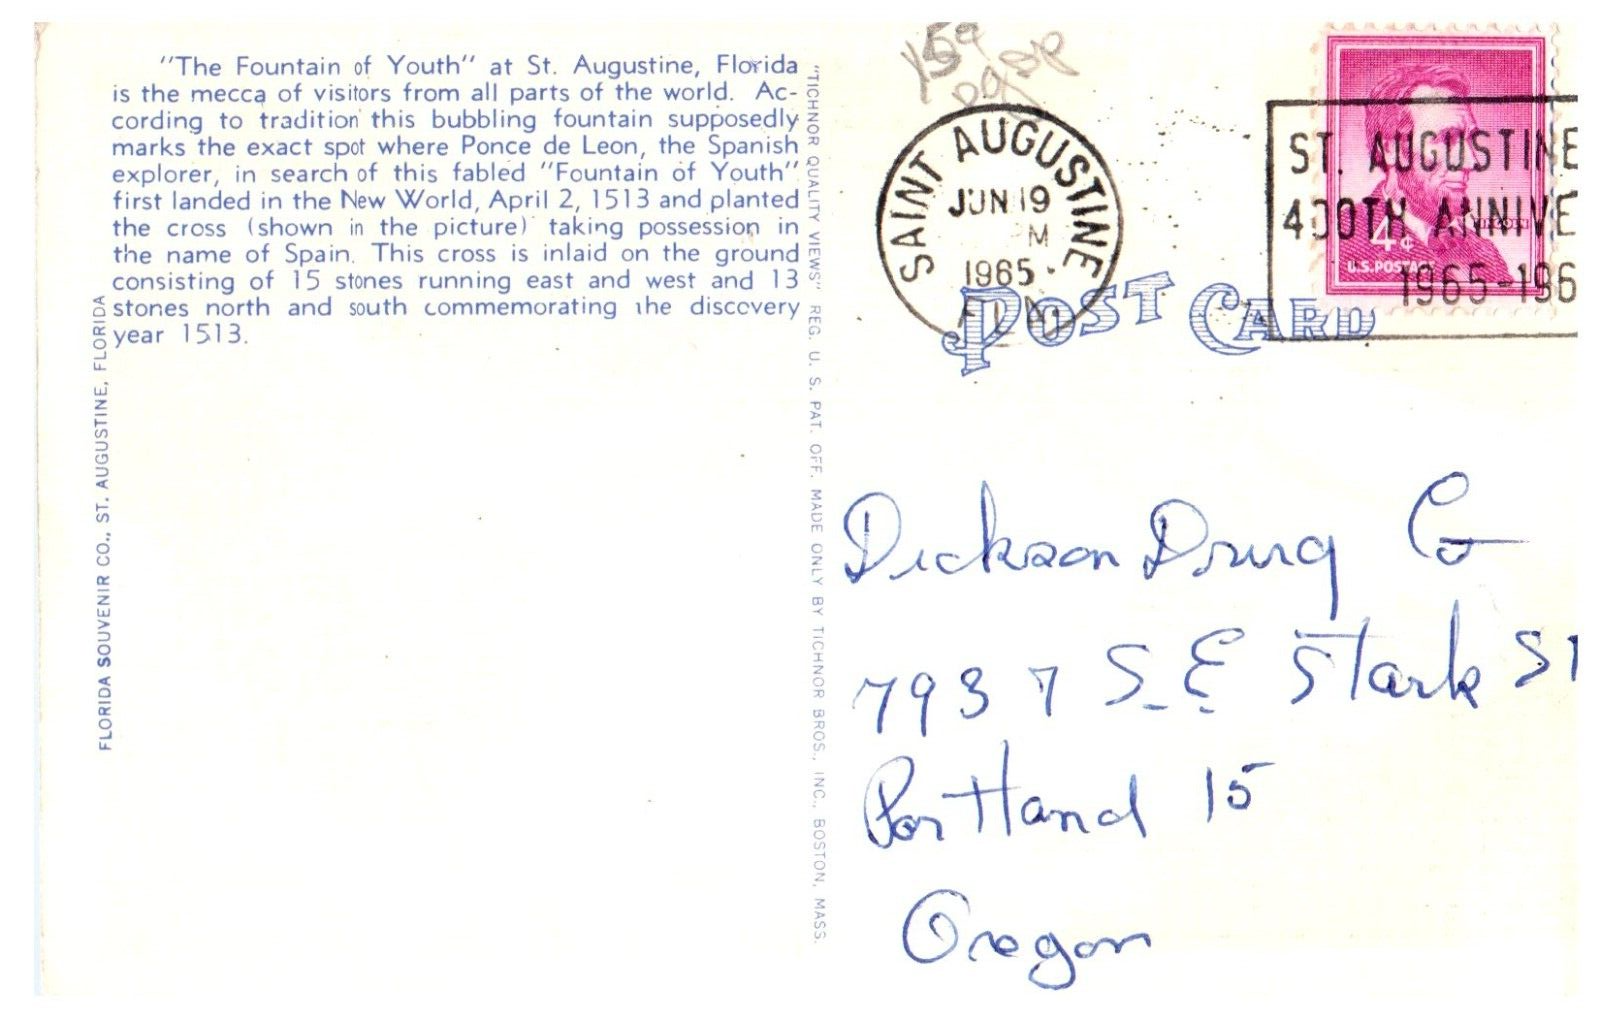 "The Fountain of Youth" at St. Augustine, Florida
is the mecca of visitors from all parts of the world. Ac-
cording to tradition this bubbling fountain supposedly
marks the exact spot where Ponce de Leon, the Spanish
explorer, in search of this fabled "Fountain of Youth"
first landed in the New World, April 2, 1513 and planted
the cross (shown in the picture) taking possession in
the name of Spain. This cross is inlaid on the ground
consisting of 15 stones running east and west and 13
stones north and south commemorating the discovery
year 1513.
FLORIDA SOUVENIR CO., ST. AUGUSTINE, FLORIDA
"TICHNOR QUALITY VIEWS" REG. U. S. PAT. OFF. MADE ONLY BY TICHNOR BROS., INC., BOSTON, MASS.
SAINT AUGUSTINE
JUN 19
M
1965
POST CARD
4¢
U.S. POSTAGE
ST. AUGUSTINE
400TH ANNIVE
1965-196
Dickson Drug Co
7937 S.E. Stark St
Portland 15
Oregon